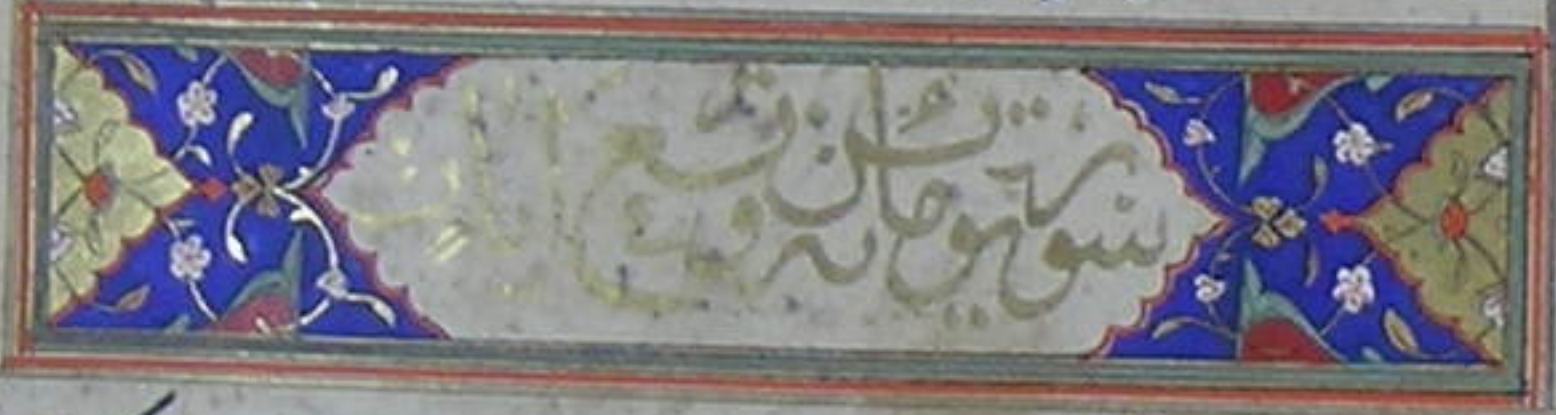 سورة يونس مائه و تسع ايات